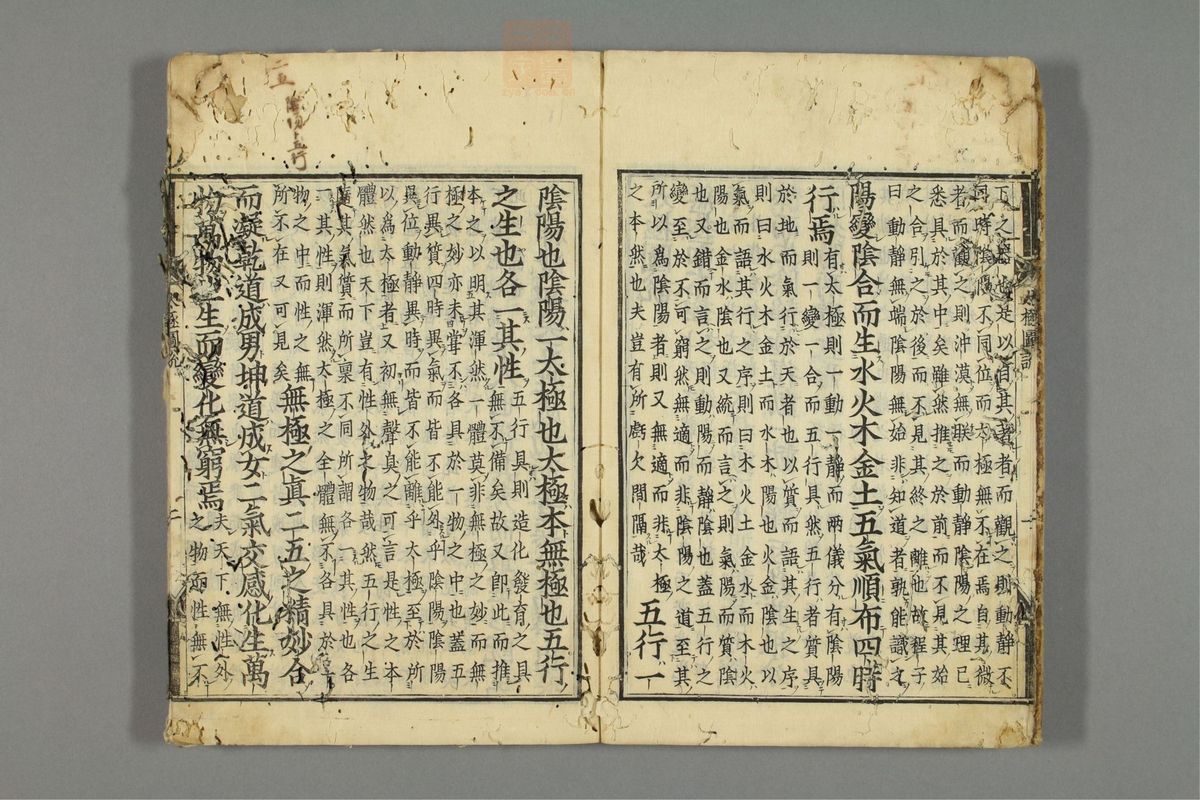 下之器也是以自其著者而觀之則動靜不
同時陰陽不同位而太極無不在焉自其微
者而觀之則沖漠無朕而動靜陰陽之理已
悉具於其中矣雖然推之於前而不見其始
之合引之於後而不見其終之離也故程子
曰動靜無端陰陽無始非知道者孰能識之
陽變陰合而生水火木金土五氣順布四時
行焉
有太極則一動一靜而兩儀分有陰陽
則一變一合而五行具然五行者質具
於地而氣行於天者也以質而語其生之序
則曰水火木金土而水木陽也火金陰也以
氣而語其行之序則曰木火土金水而木火
陽也金水陰也又統而言之則氣陽而質陰
也又錯而言之則動陽而靜陰也蓋五行之
變至於不可窮然無適而非陰陽之道至其
所以爲陰陽者則又無適而非太極
之本然也夫豈有所虧欠間隔哉
五行一
陰陽也陰陽一太極也太極本無極也五行
之生也各一其性
五行具則造化發育之具
無不備矣故又卽此而推
本之以明其渾然一體莫非無極之妙而無
極之妙亦未嘗不各具於一物之中也蓋五
行異質四時異氣而皆不能外乎陰陽陰陽
異位動靜異時而皆不能離乎太極至於所
以爲太極者又初無聲臭之可言是性之本
體然也天下豈有性外之物哉然五行之生
隨其氣質而所稟不同所謂各一其性也各
一其性則渾然太極之全體無不各具於一
物之中而性之無
所不在又可見矣
無極之眞二五之精妙合
而凝乾道成男坤道成女二氣交感化生萬
物萬物生生而變化無窮焉
夫天下無性外
之物而性無不